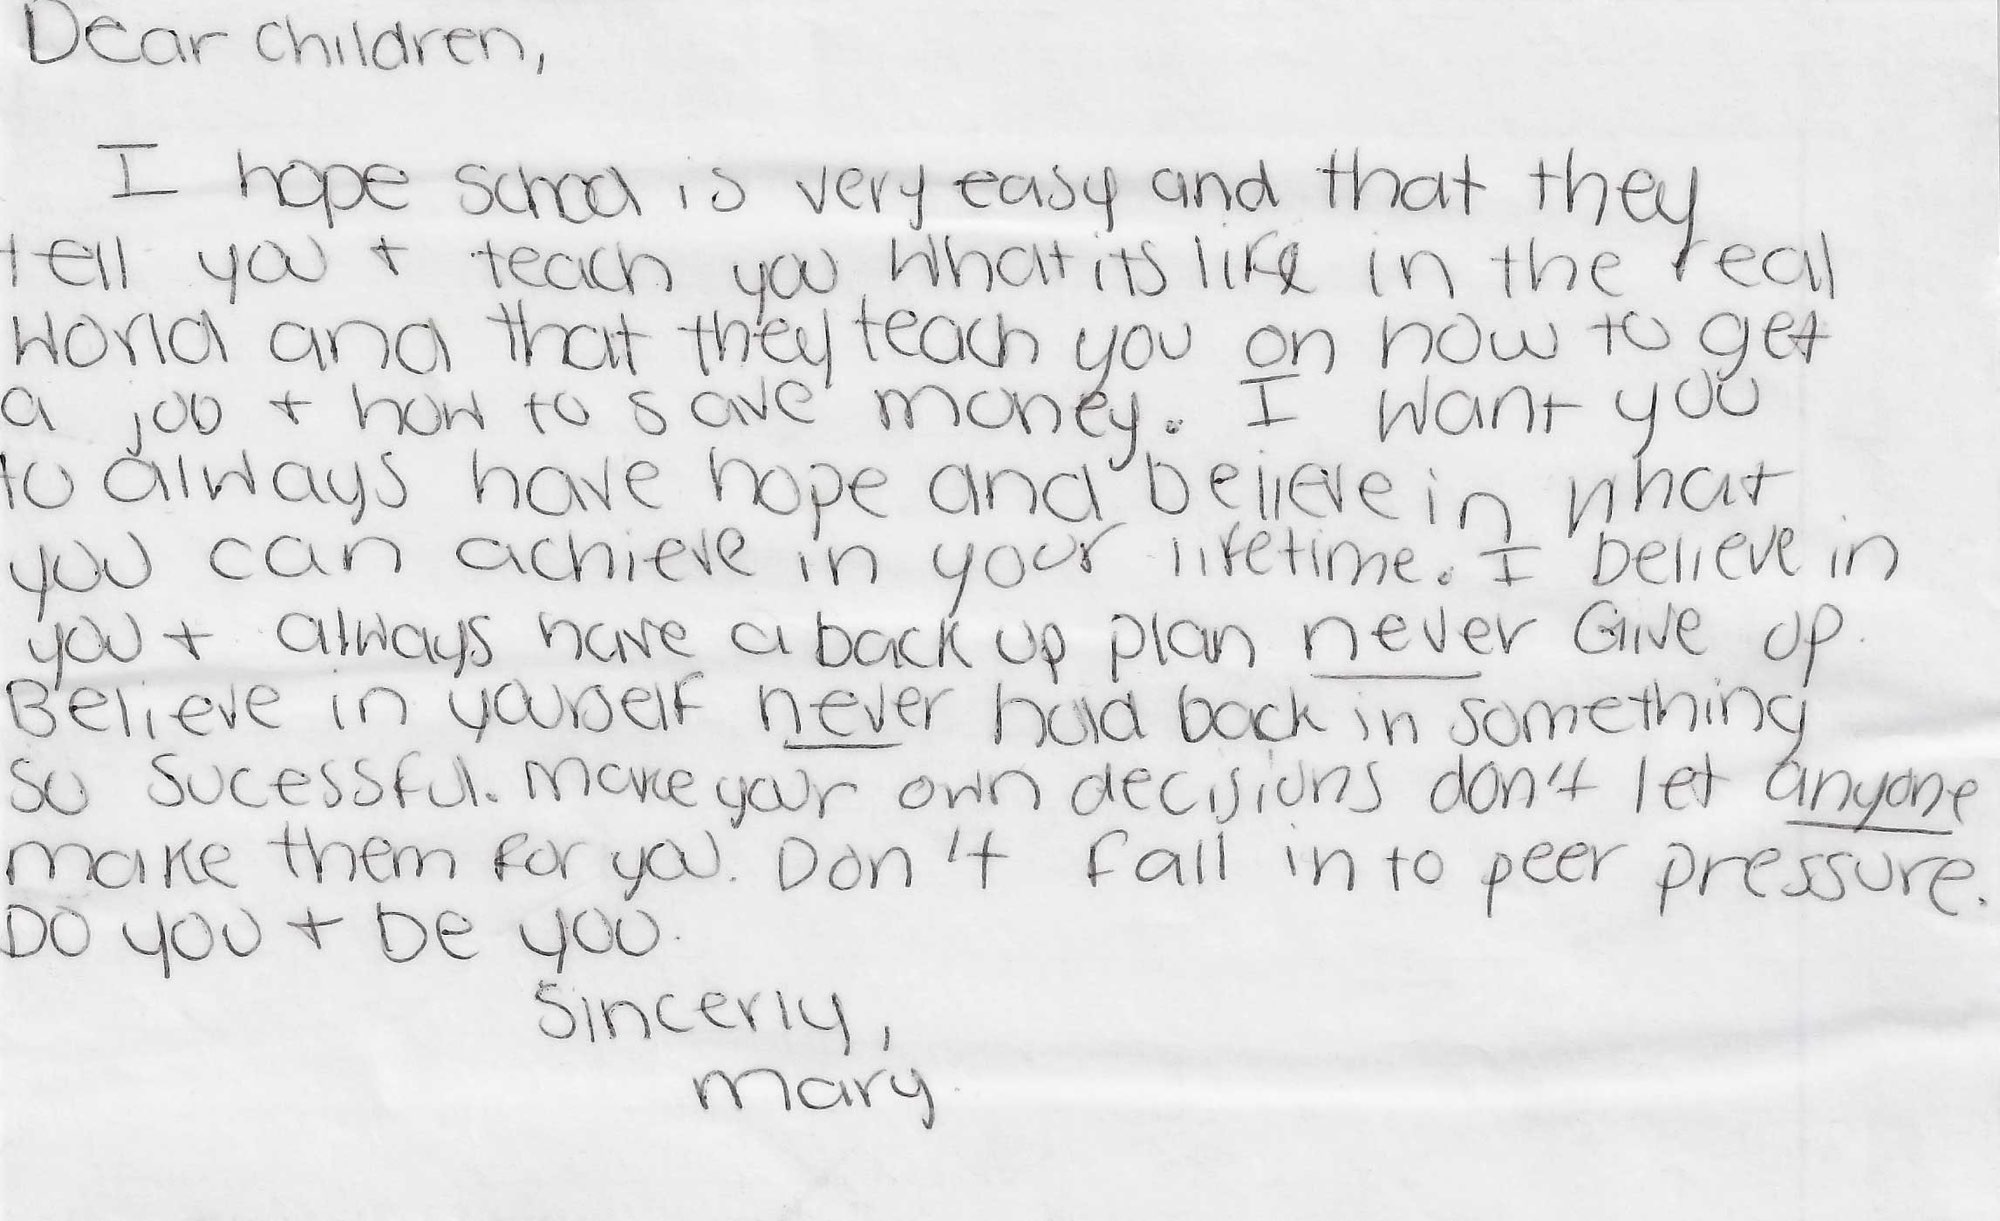 Dear children,
I hope school is very easy and that they
tell you + teach you what its like in the real
world and that they teach you on how to get
a job + how to save money. I want you
to always have hope and believe in what
you can achieve in your lifetime. I believe in
you + always have a back up plan never Give up.
Believe in yourself never hold back in something
so sucessful. Make your own decisions don't let anyone
make them for you. Don't fall in to peer pressure.
Do you + be you.
Sincerly,
Mary